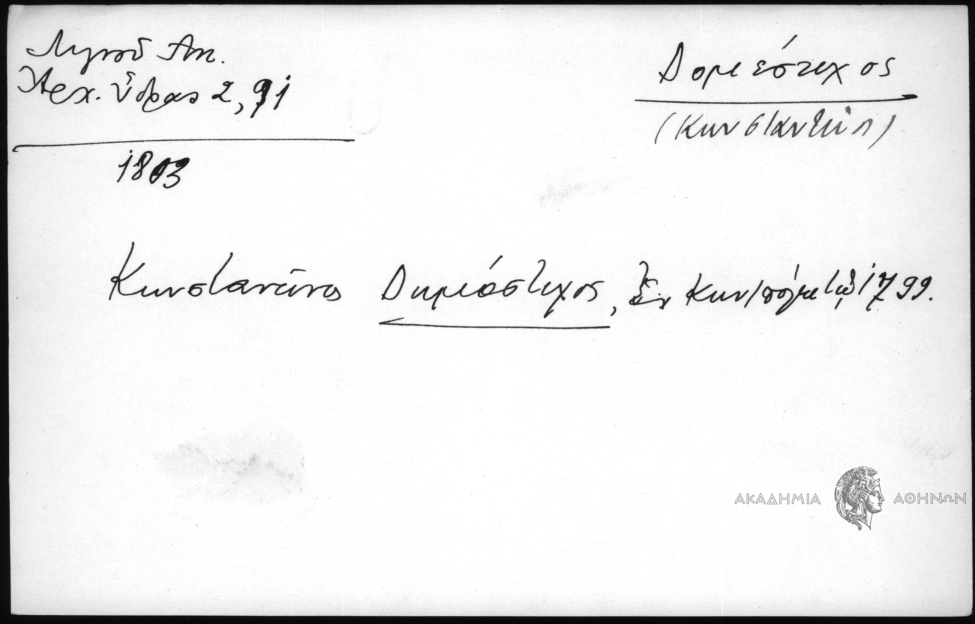 Λιγνοῦ Αντ.
Ἀρχ. Ὕδρας 2, 91
1803
Δομέστιχος
(Κωνσταντῖν)
Κωνσταντῖνος Δημέστιχος, Ἐν Κων/πόλει τῷ 1799.
ΑΚΑΔΗΜΙΑ ΑΘΗΝΩΝ